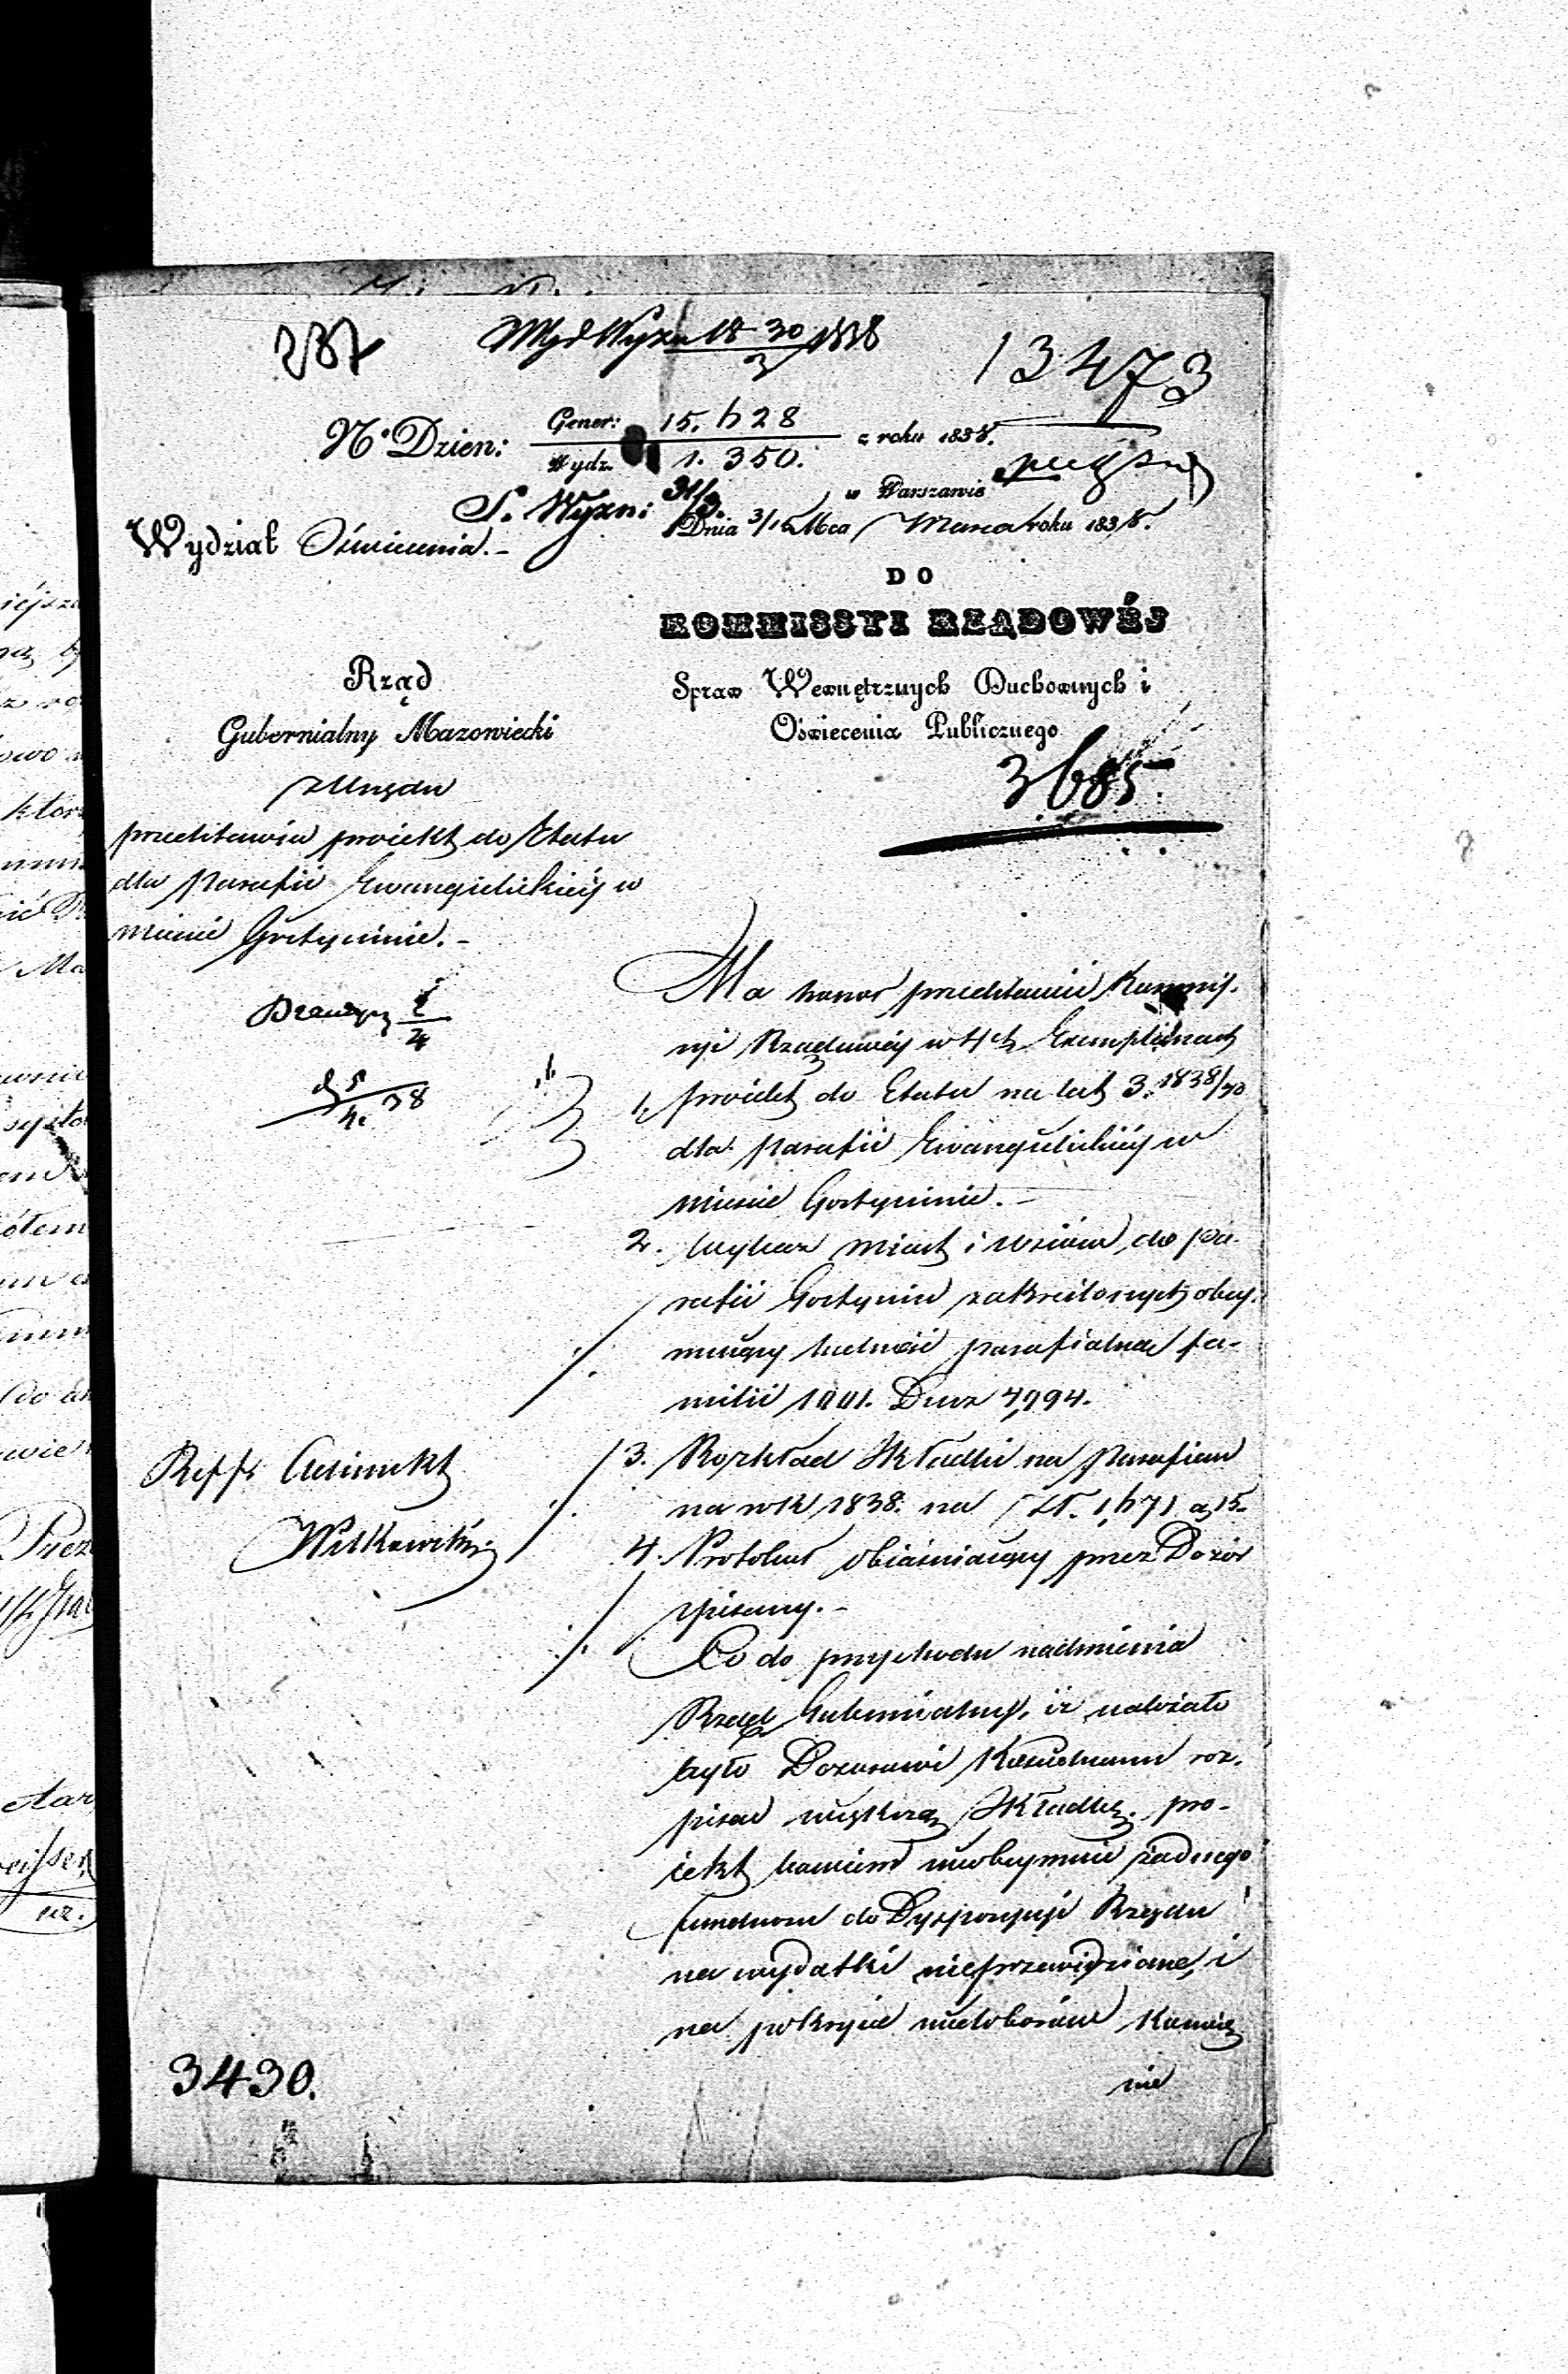 13473
Nº Dzien:
Gener: 15.628
Wydz. 1.350.
z roku 1838.
S. Wyzn: 31/3.
w Warszawie
Dnia 3/15 Mca Marca roku 1838.
Wydział Oświecenia.-
DO
KOMMISSYI RZĄDOWÉJ
Spraw Wewnętrznych Duchownych i
Oświecenia Publicznego
3685.
Rząd
Gubernialny Mazowiecki
z Urzędu
przedstawia proiekt do Etatu
dla Parafii Ewangielickiéy w
mieście Gostyninie.-
Ma honor przedstawić Kommis-
syi Rządowéy w 4ch Exemplarzach
1, proiekt do Etatu na lat 3. 1838/40
dla Parafii Ewangielickiéy w
mieście Gostyninie.-
2. Wykaz miast i wsiów, do pa-
rafii Gostynin zakreślonych obey-
muiący ludność parafialną fa-
milii 1001. Dusz 4,994.
3. Rozkład Składki na Parafian
na rok 1838. na Zł. 1,671 g 15.
4. Protokuł obiaśniaiący przez Dozór
spisany.-
Co do przychodu nadmienia
Rząd Gubernialny, iż należało
było Dozorowi Kościelnemu roz-
pisać większą Składkę. pro-
iekt bowiem nieobeymuie żadnego
funduszu do Dyspozycyi Rządu
na wydatki nieprzewidziane, i
na pokrycie niedoborów
nie
3430.